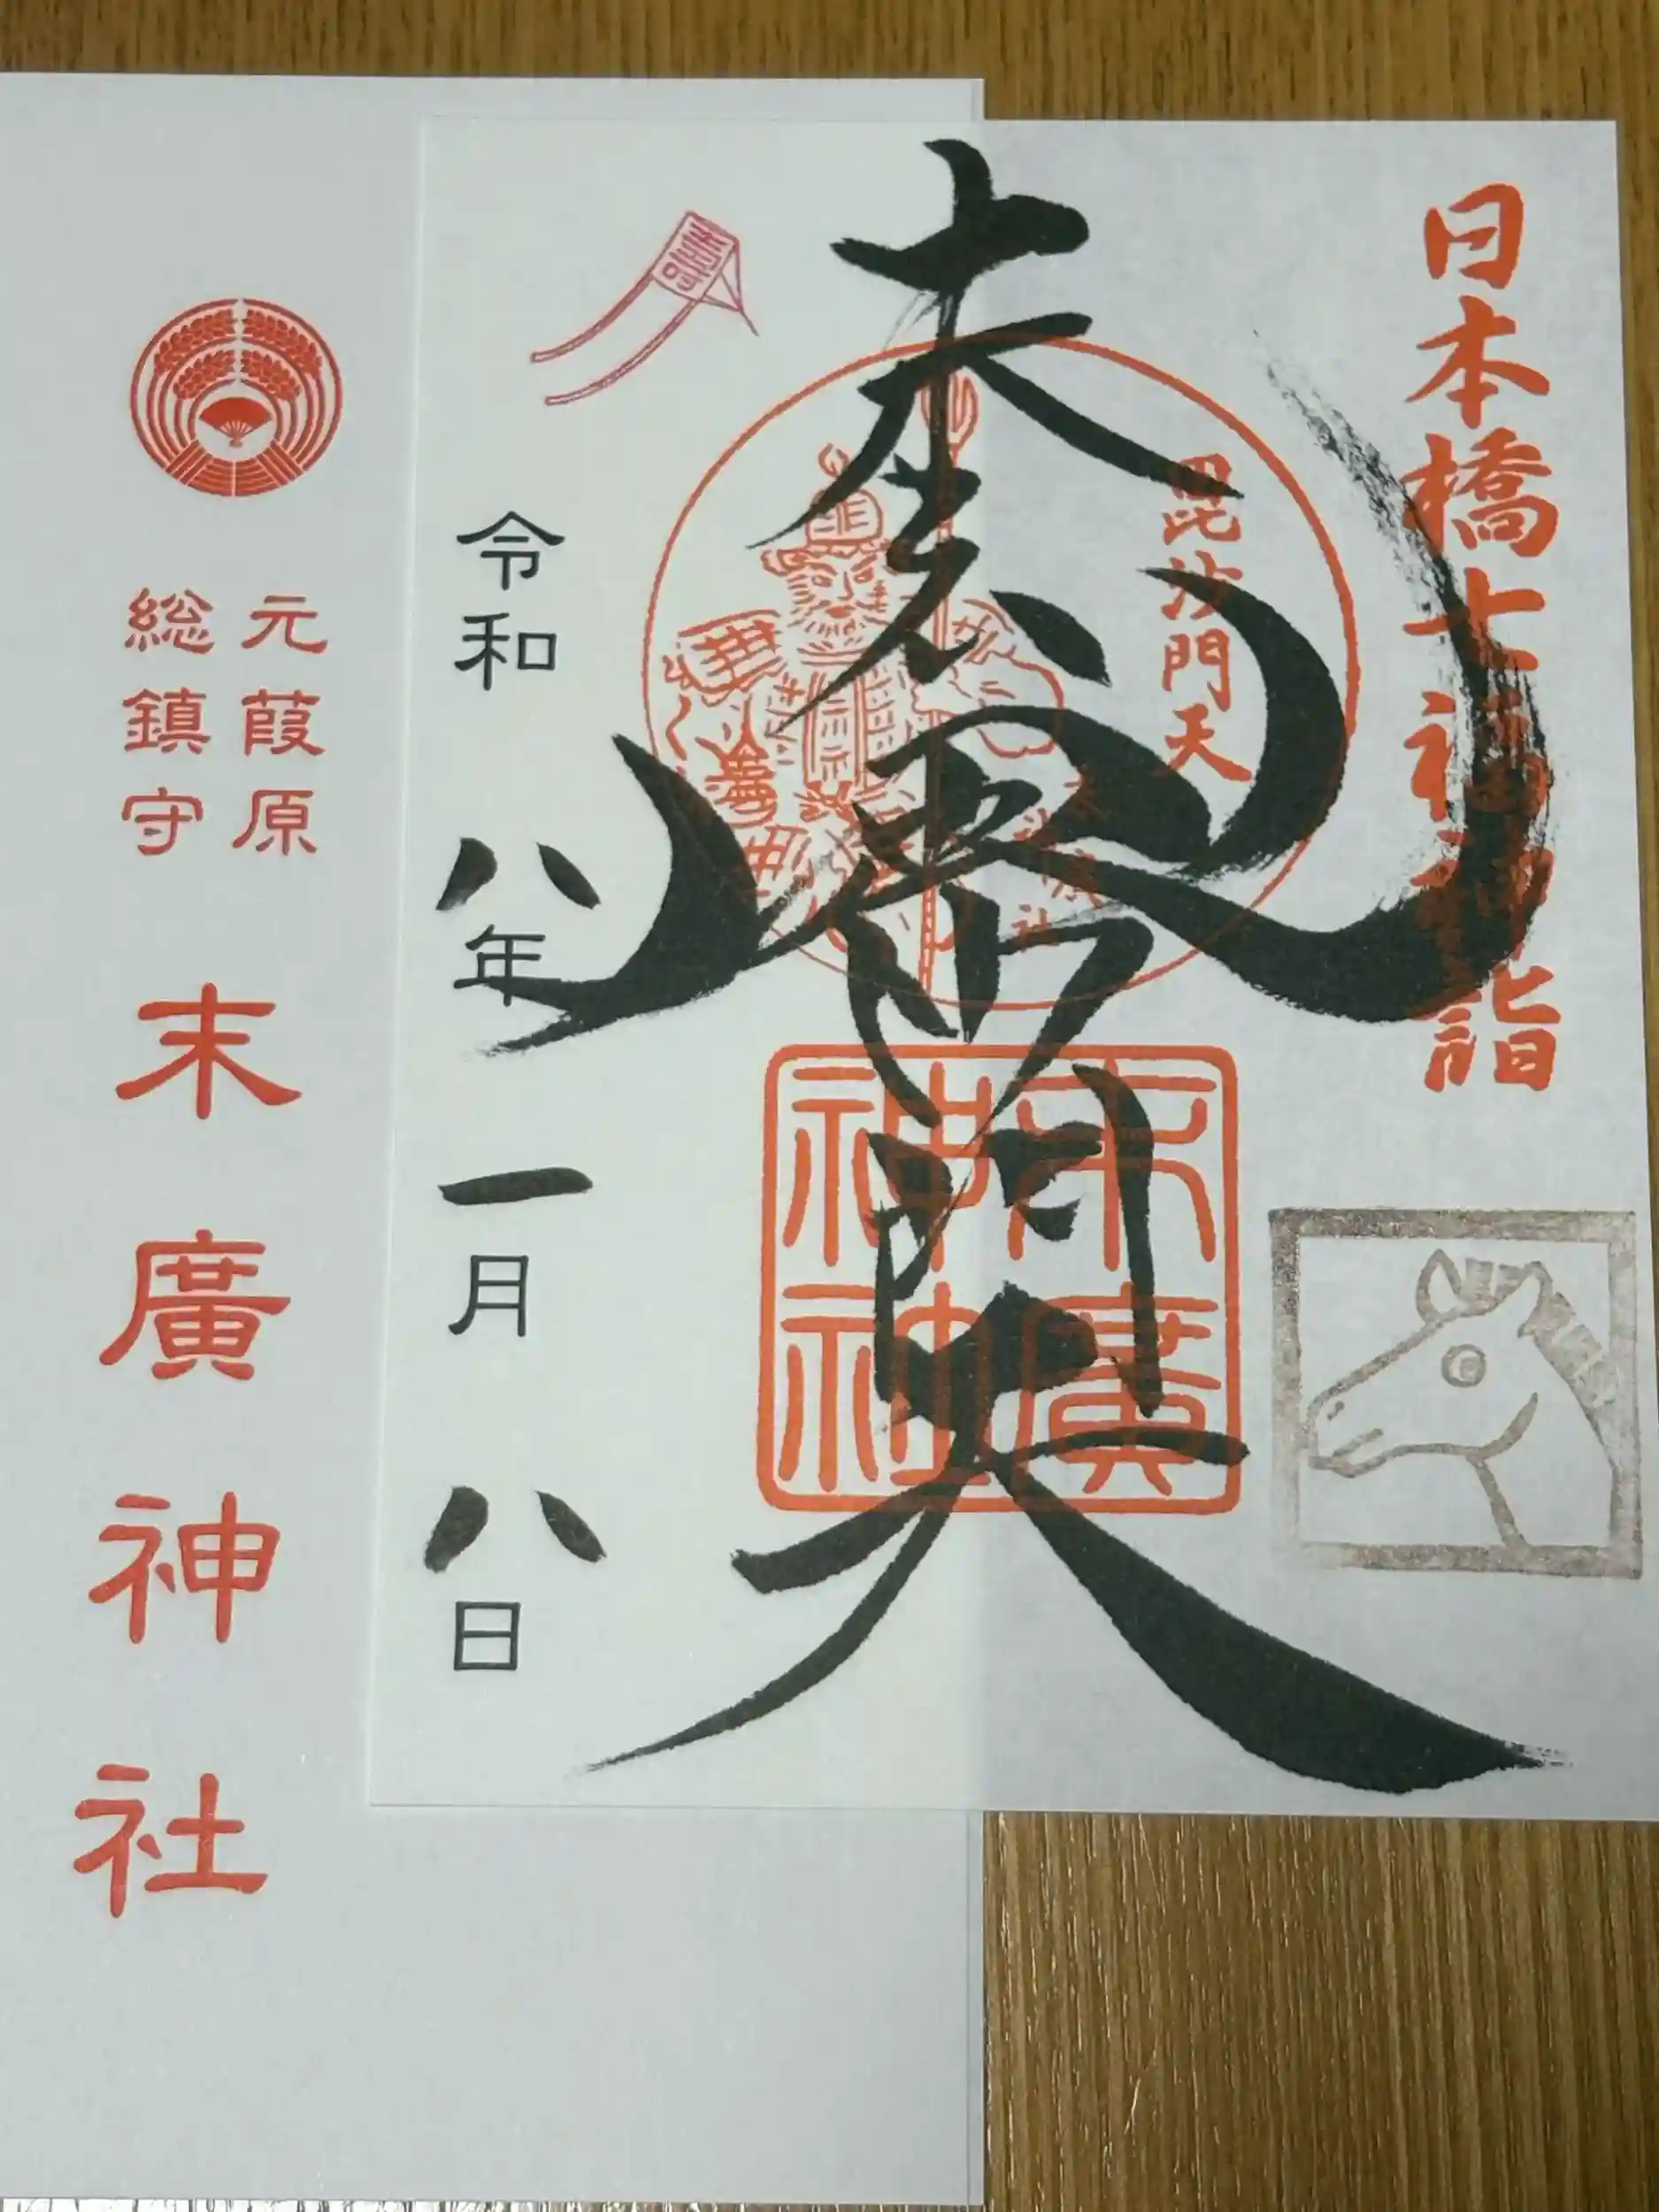 日本橋七福神詣
毘沙門天
奉拝
毘沙門天
末廣
神社
寿
令和八年一月八日
元葭原
総鎮守
末廣神社